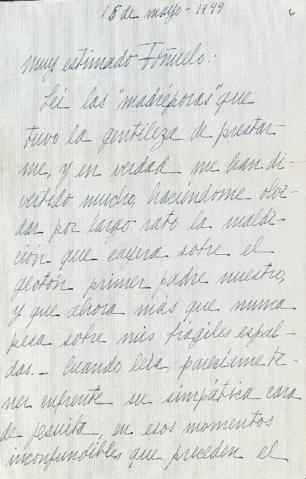 15 de mayo - 1944
6
Muy estimado Foñuelo:
Leí las "madréporas" que
tuvo la gentileza de prestar
me, y en verdad me han di
vertido mucho, haciéndome olvi
dar por largo rato la maldi-
ción que cayera sobre el
glotón primer padre nuestro,
y que ahora más que nunca
pesa sobre mis frágiles espal-
das.- Cuando leía, parecíame te-
ner enfrente su simpática cara
de jesuita, en esos momentos
inconfundibles que preceden el